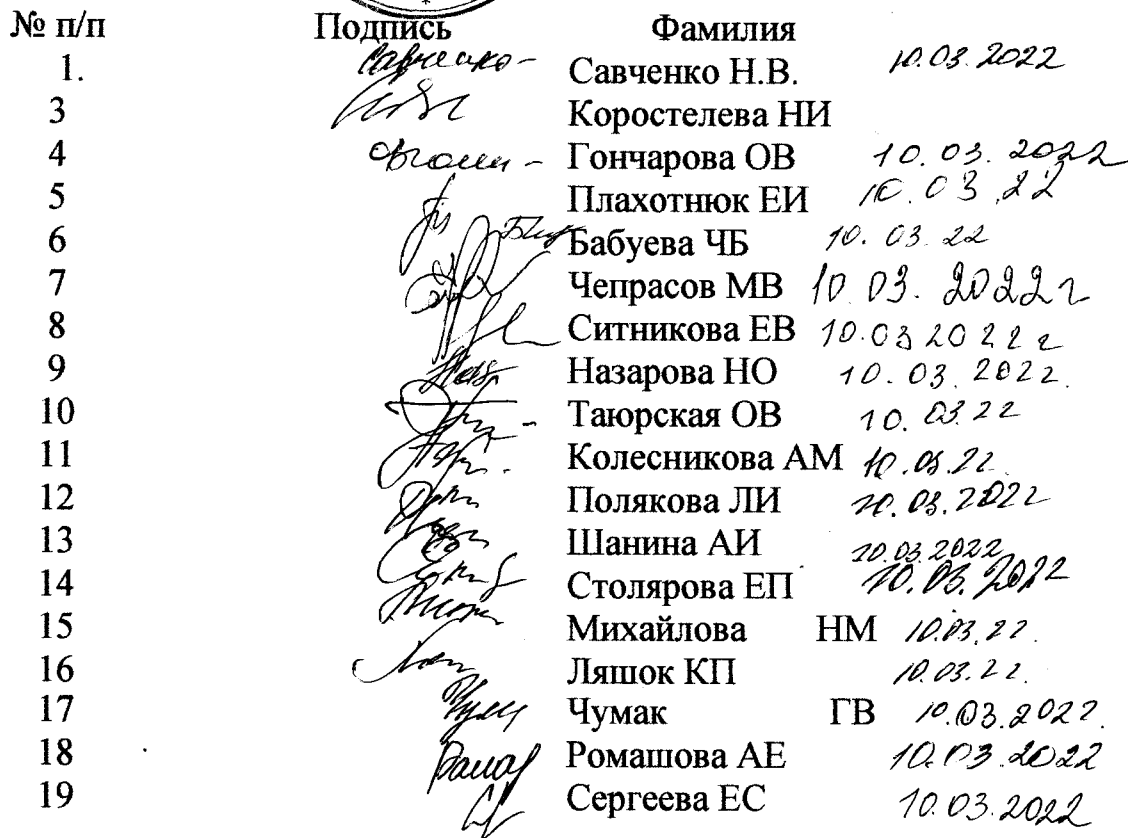 № п/п Подпись Фамилия
1. Савченко- Савченко Н.В. 10.03.2022
3 Коростелева НИ
4 Гончарова ОВ 10.03.2022
5 Плахотнюк ЕИ 10.03.22
6 Бабуева ЧБ 10.03.22
7 Чепрасов МВ 10.03.2022г
8 Ситникова ЕВ 10.03 2022 г
9 Назарова НО 10.03.2022.
10 Таюрская ОВ 10.03.22
11 Колесникова АМ 10.03.22.
12 Полякова ЛИ 10.03.2022
13 Шанина АИ 10.03.2022
14 Столярова ЕП 10.03.2022
15 Михайлова НМ 10.03.22.
16 Ляшок КП 10.03.22.
17 Чумак ГВ 10.03.2022.
18 Ромашова АЕ 10.03.2022
19 Сергеева ЕС 10.03.2022